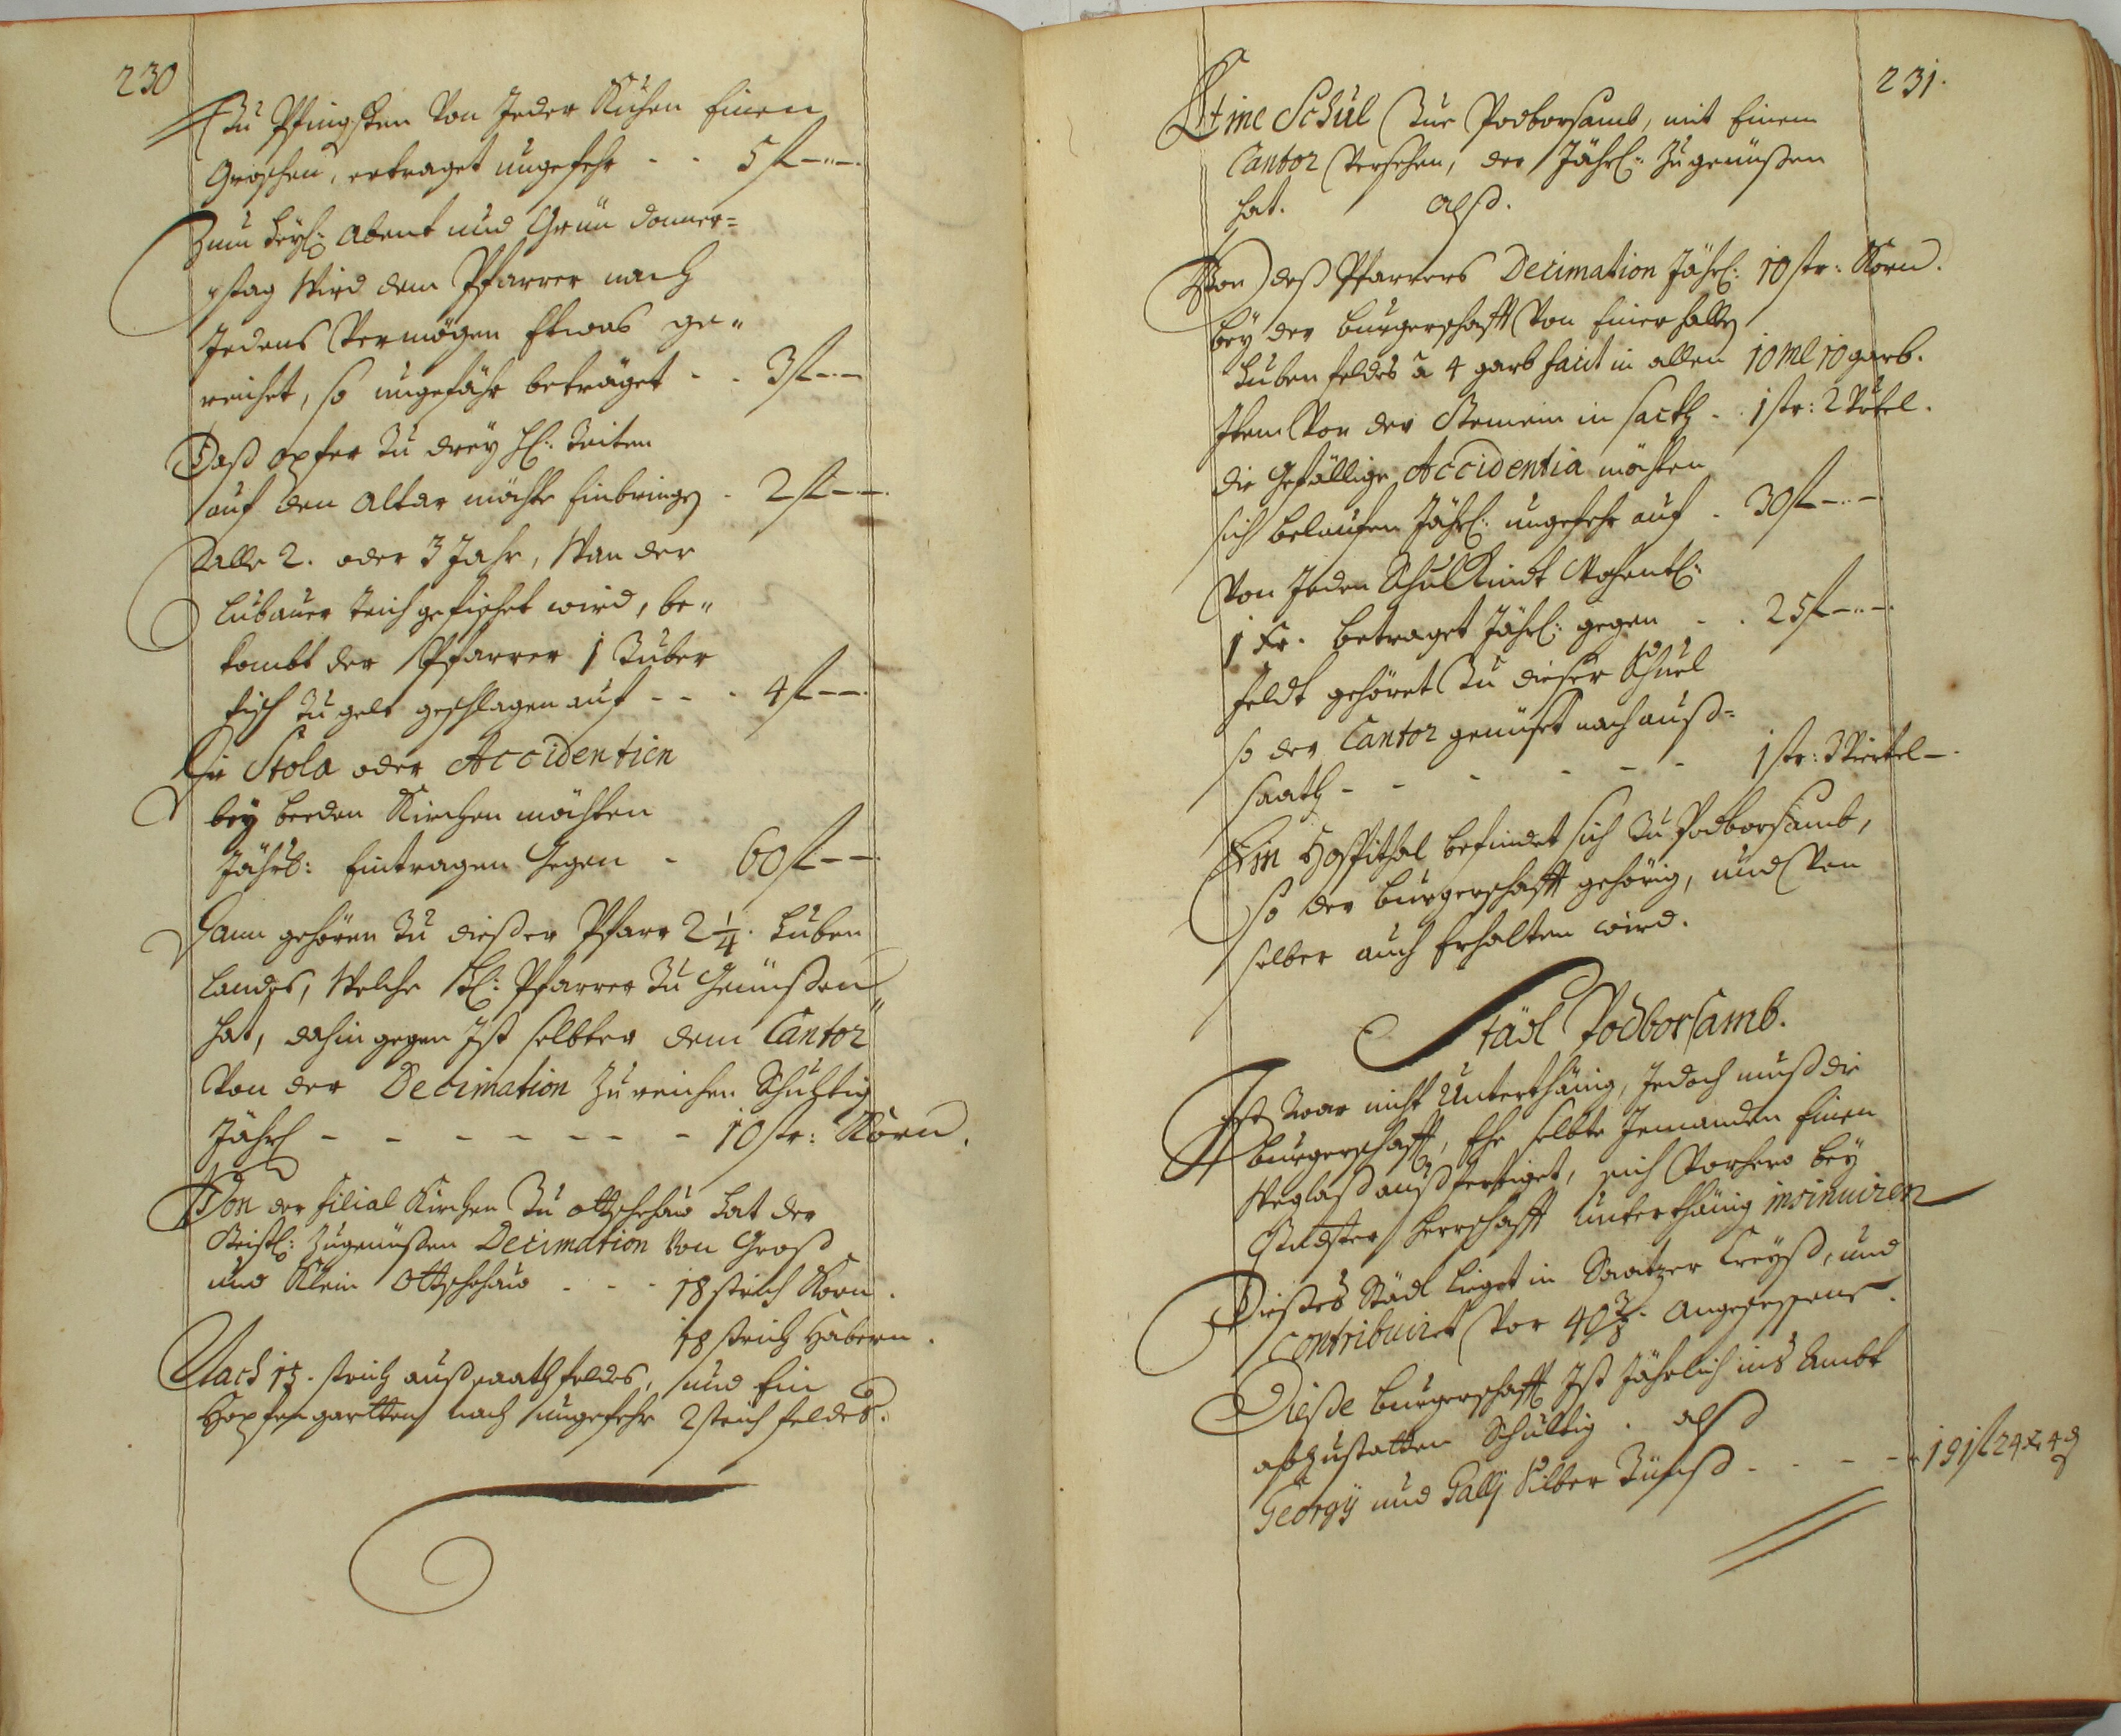 230
Zu Pfingsten Von Jeder Kuhen Einen
Groschen, ertraget ungefehr - - 5 f -..-.
Zum heyl: Abent und Grün Donner=
stag Wird dem Pfarrer nach
Jedens Vermögen Etwas ge"
reichet, so ungefähr beträget - - 3 f -..-
Daß opfer Zu drey hl: Zeiten
auf den Altar möchte Einbringen - 2 f -..-.
Alle 2. oder 3 Jahr, Wan der
Lubauer Teich gefischet wird, be"
kombt der Pfarrer 1 Zuber
Fisch Zu gelt geschlagen auf - - - 4 f -..-.
Die Stola oder Accidentien
bey beeden Kirchen möchten
Jährl: Eintragen Gegen - 60 f -..-.
Dann gehören Zu dießer Pfarr 2 1/4. Huben
Landes, Welche H: Pfarrer Zu Genüßen
hat, dahingegen Ist selbter dem Cantor
Von der Decimation Zu reichen Schultig
Jährl - - - - - - - 10 str: Korn.
Von der Filial Kirchen Zu Ottschehau hat der
Geistl: Zugenüßen Decimation Von Groß
und Klein Ottschehau - - - 18 strich Korn.
18 strich Habern.
Nach strich außsaath feldes, und Ein
Hopfengartten nach ungefehr 2 strich feldes.
231.
Eine Schul Zue Podborsamb, mit Einem
Cantor Versehen, der Jährl: Zugenüßen
hat. alß.
Von deß Pfarrers Decimation Jährl: 10 str: Korn.
bey der burgerschafft Von Einer halben
Huben feldes à 4 garb facit in allen 10 Ml 10 garb.
Item Von der Gemein in sackh - . 1 str: 2 Virtel.
die Gefällige Accidentia möchten
sich belaufen Jährl: ungefehr auf - 30 f -..-.
Von Jeden Schul Kindt Wochentl:
1 Kr. betraget Jährl: gegen - . 25 f -..-.
Feldt gehöret Zu dieser Schuel
so der Cantor genüset nach auß=
saath - - - - - - 1 str: 3 Viertel -.
Ein Hospithal befindet sich Zu Podborsamb,
so der burgerschafft gehörig, und Von
selber auch Erhalten wird.
Städl Podborsamb.
Ist Zwar nicht Unterthänig, Jedoch muß die
burgerschafft, Ehe selbte Jemanden Einen
Weglaß außfertiget, sich Vorhero bey
Gnädster herrschafft Unterthänig insinuiren
Dießes Städl Lieget in Saatzer Creyß, und
Contribuiret Vor 40 3/8. Angesessene.
Dieße burgerschafft Ist Jährlich ins Ambt
abzustatten Schultig. alß
Georgÿ und Gallj Silber Zünß - - - - 191 f 24 x 4 d